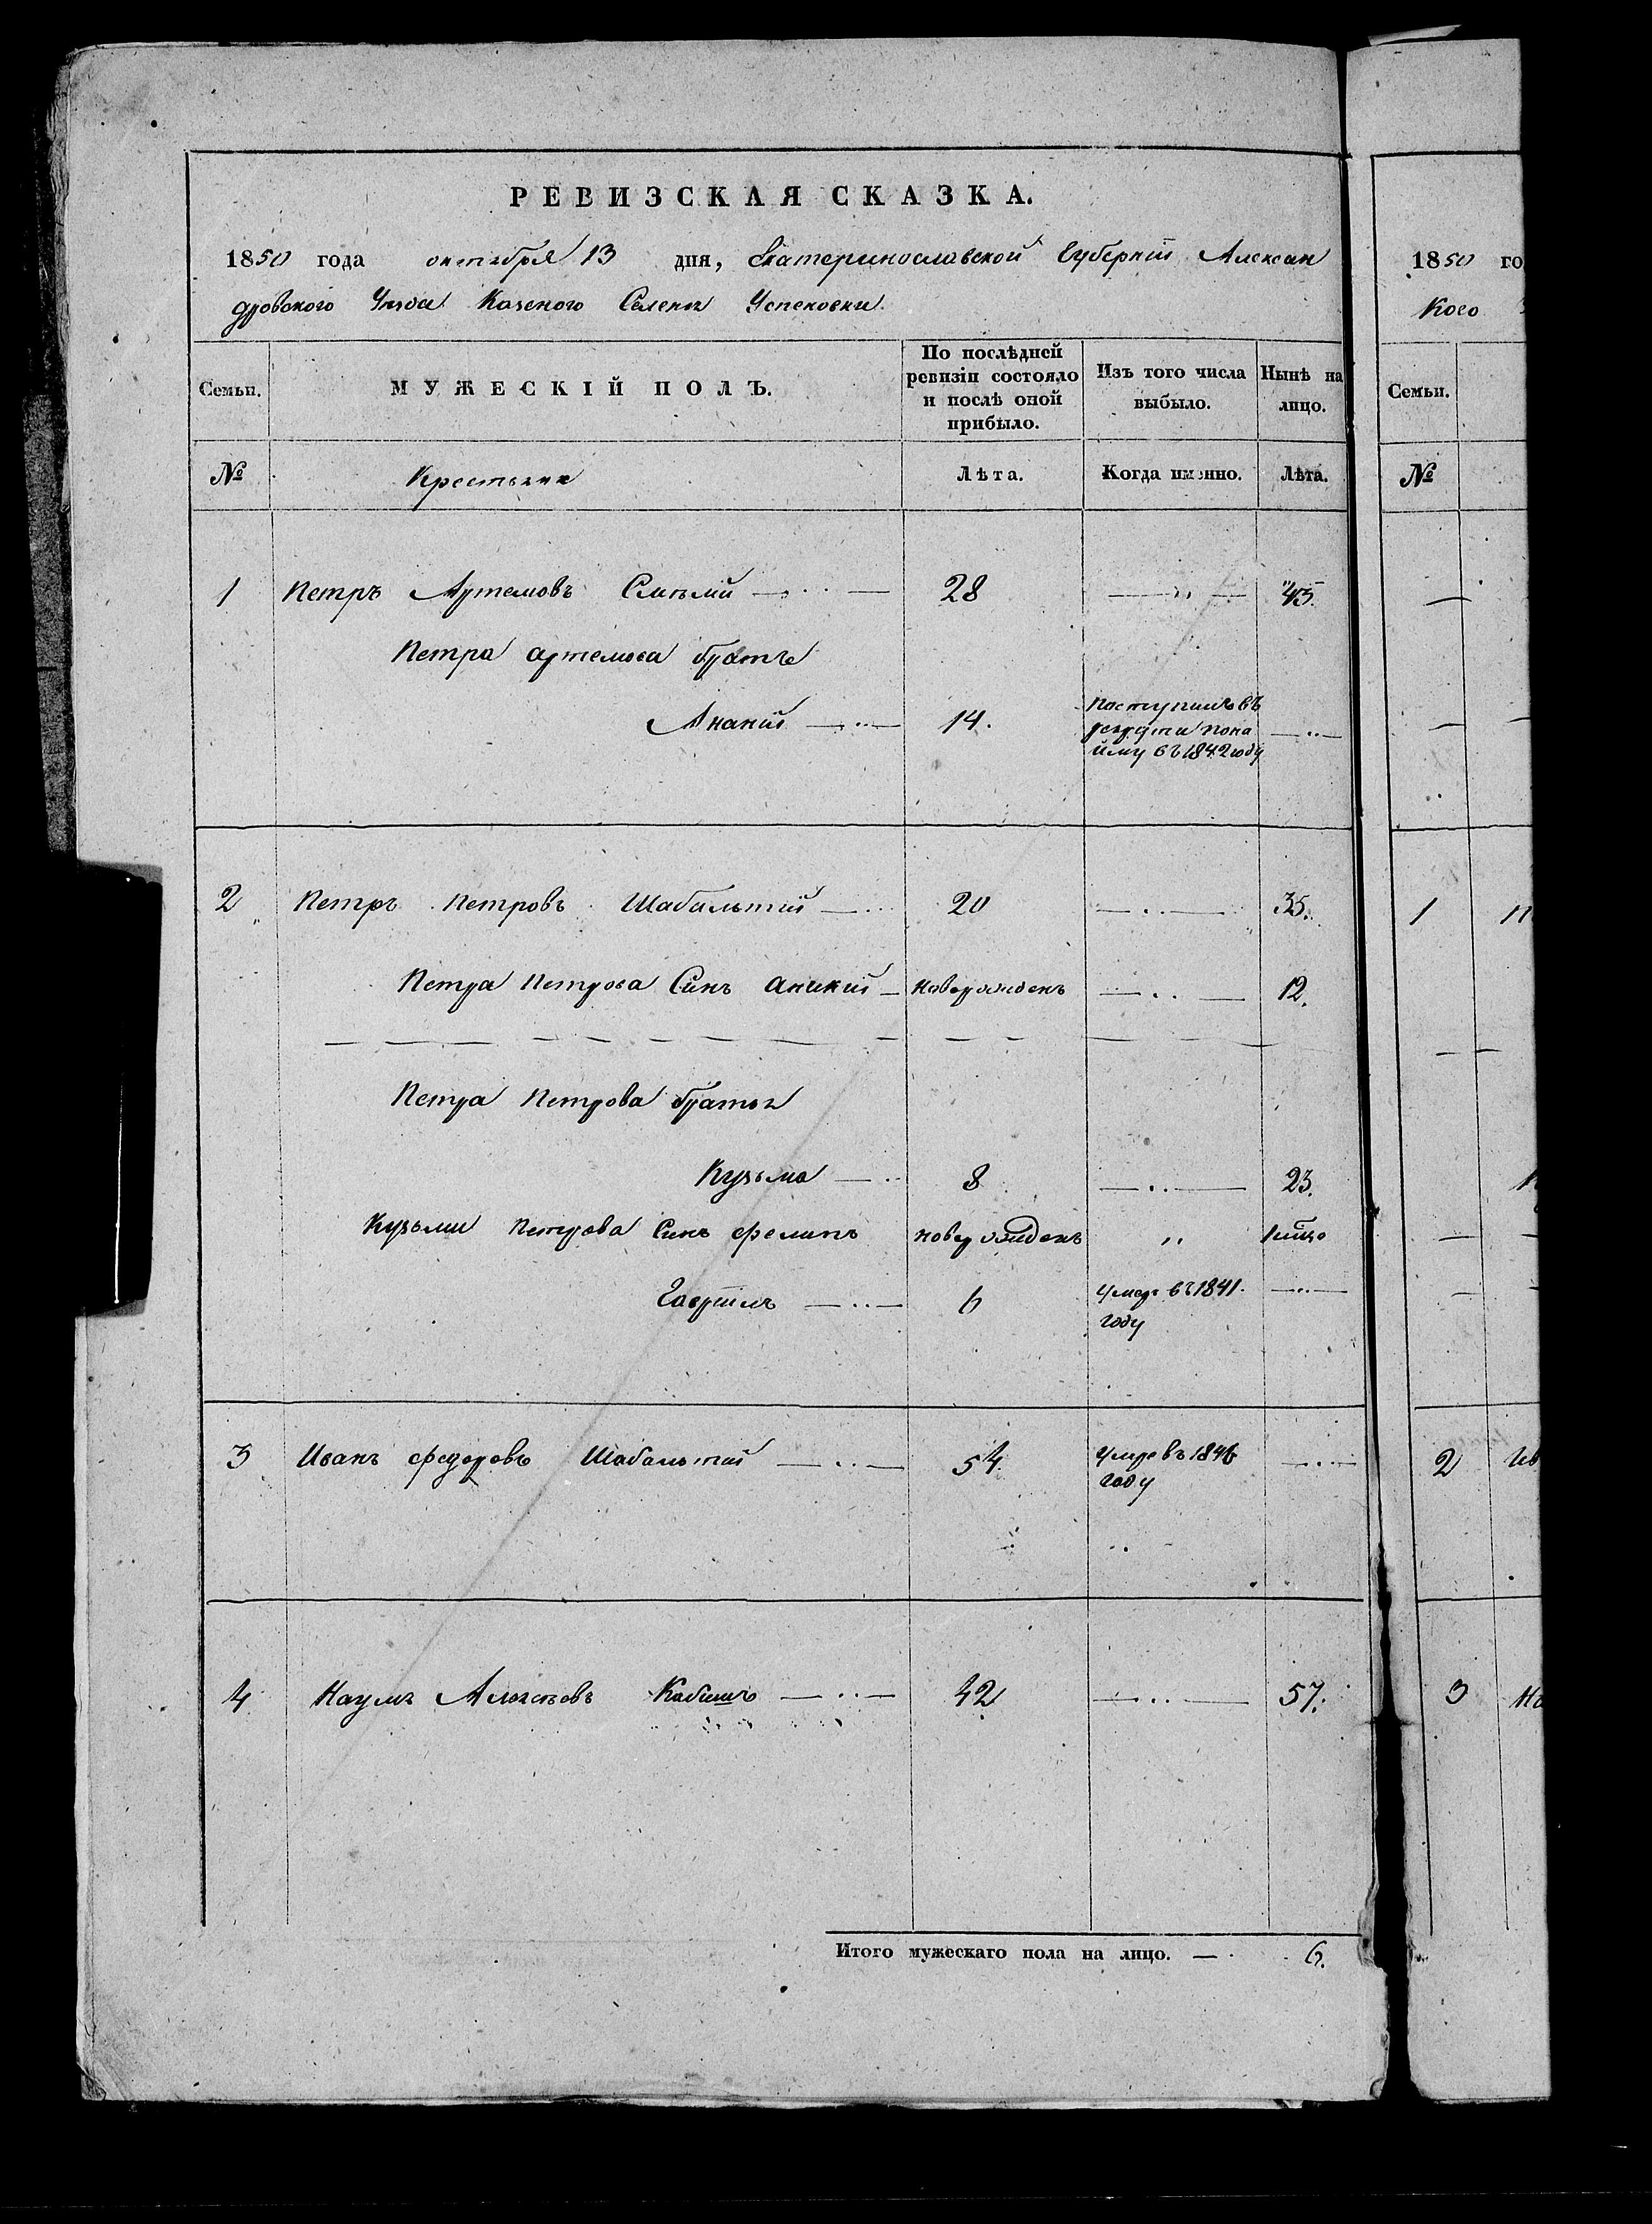 РЕВИЗСКАЯ СКАЗКА.
1850 года октября 13 дня, Екатеринославской Губерніи Алексан
дровского Уѣзда Казеного Селенія Успеновки
Семьи. МУЖЕСКІЙ ПОЛЪ. По послѣдней ревизіи состояло и послѣ оной прибыло. Изъ того числа выбыло. Нынѣ на лицо.
№ Крестьяне Лѣта. Когда именно. Лѣта.
1 Петръ Артемовъ 28 — „ — 45.
Петра артемова братъ
Ананій — „ — 14. Поступилъ въ
рекруты пона
йму въ 1842 году — „ —
2 Петръ Петровъ Шабалтій — „ 20 — „ — 35.
Петра Петрова Синъ Аникій — новорожденъ — „ — 12.
Петра Петрова братья
Кузьма — „ 8 — „ — 23.
Кузьми Петрова Синъ Филипъ новорожденъ „
Гаврїилъ — „ — 6 Умеръ въ 1841. — „ —
году
3 Иванъ Федоровъ Шабалтій — „ — 54 Умре въ 1846 — „ —
году
4 Наумъ Алексѣевъ — „ — 42 — „ — 57.
Итого мужескаго пола на лицо. — 6.
1850 го
Кого
Семьи.
№
1 П
2 Ив
3 На